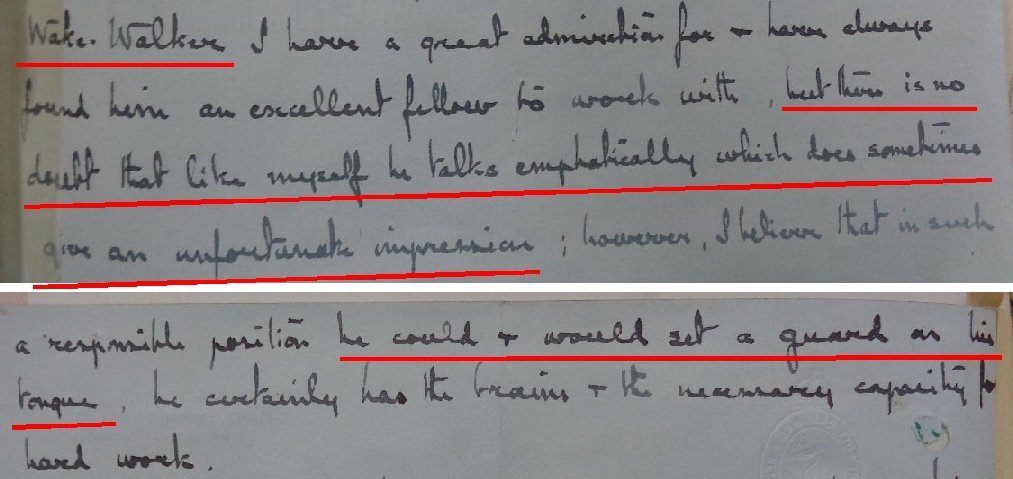 Wake-Walker I have a great admiration for + have always
found him an excellent fellow to work with, but there is no
doubt that like myself he talks emphatically which does sometimes
give an unfortunate impression; however, I believe that in such
a responsible position he could + would set a guard on his
tongue, he certainly has the brains + the necessary capacity for
hard work.